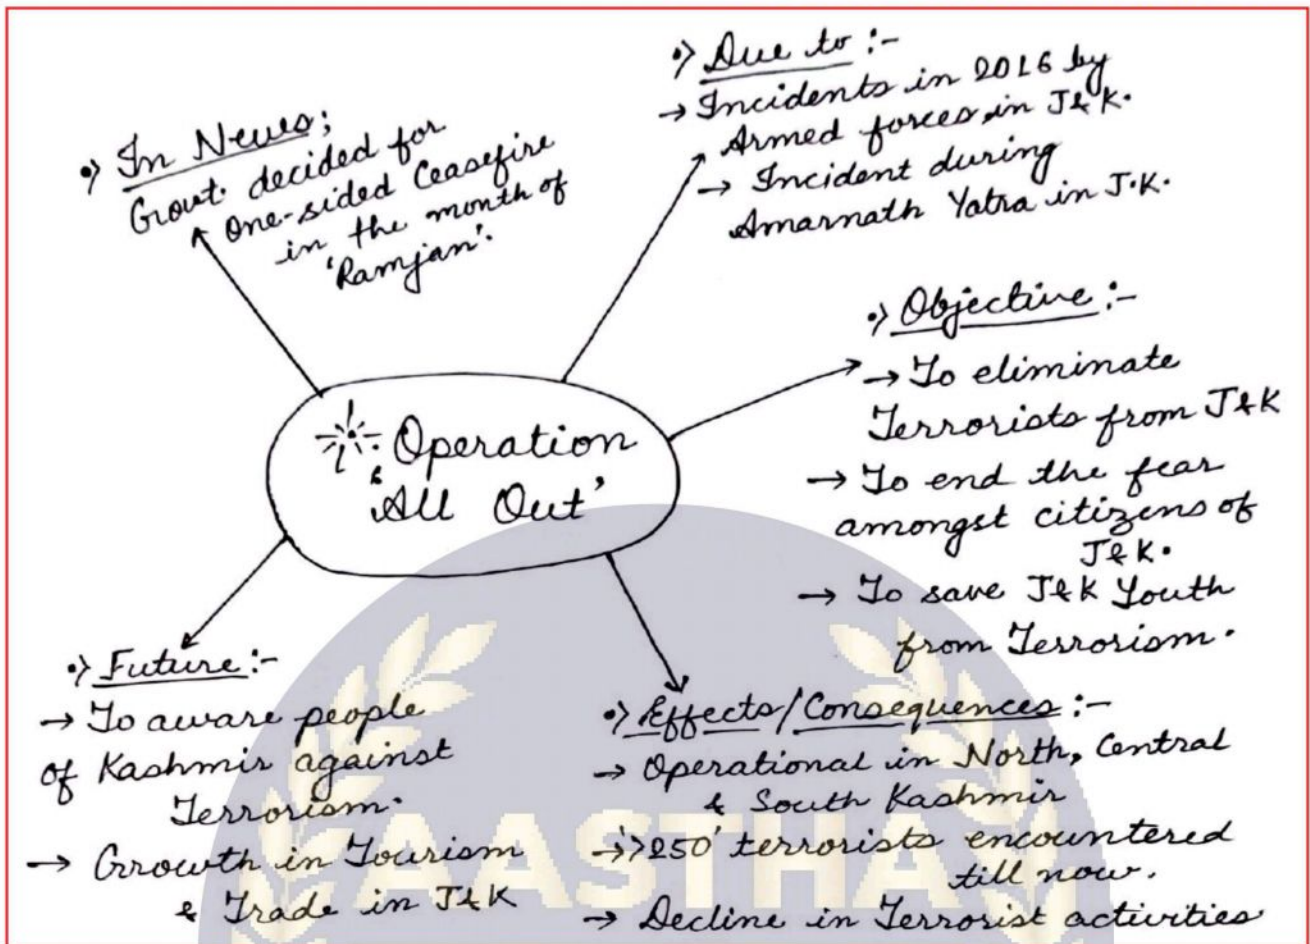 •) In News;
Govt. decided for
One-sided Ceasefire
in the month of
'Ramjan'.
•) Due to :-
→ Incidents in 2016 by
Armed forces in J&K.
→ Incident during
Amarnath Yatra in J.K.
•) Objective :-
→ To eliminate
Terrorists from J&K
→ To end the fear
amongst citizens of
J&K.
→ To save J&K Youth
from Terrorism.
Operation
'All Out'
•) Future :-
→ To aware people
of Kashmir against
Terrorism.
→ Growth in Tourism
& Trade in J&K
•) Effects/Consequences :-
→ Operational in North, Central
& South Kashmir
→ '>250' terrorists encountered
till now.
→ Decline in Terrorist activities
AASTHA